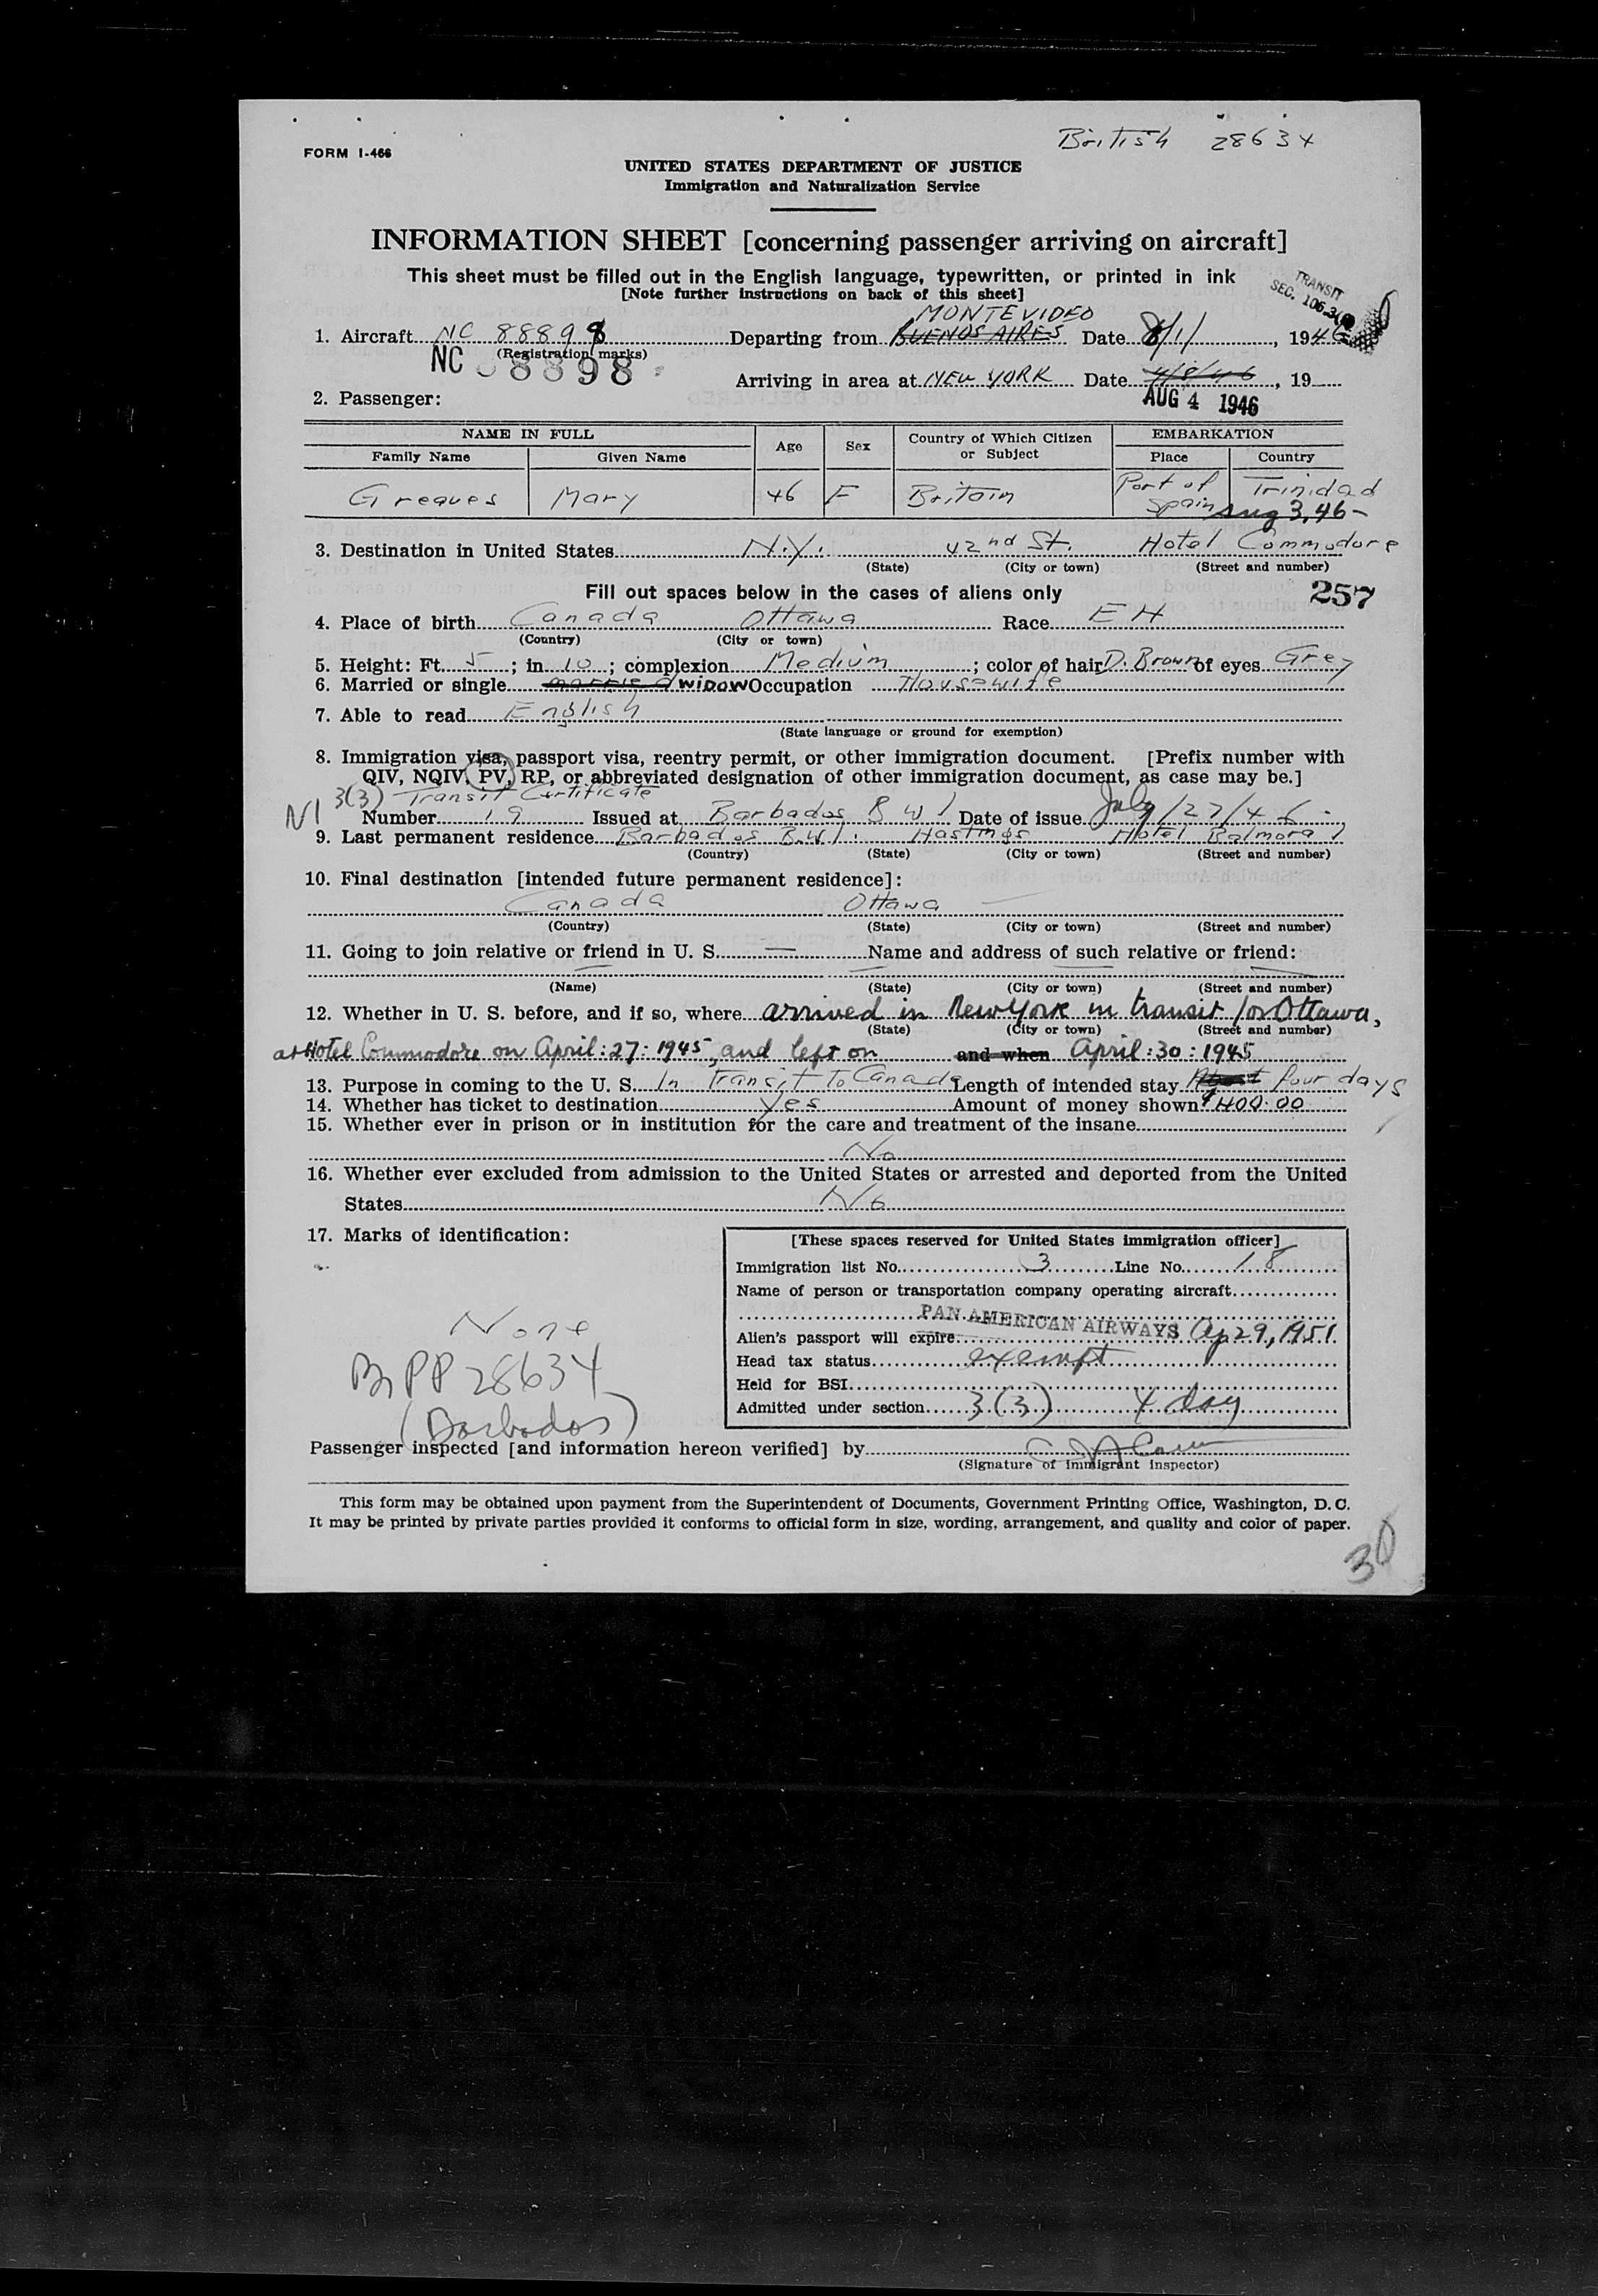 British 28634
FORM I-466
UNITED STATES DEPARTMENT OF JUSTICE
Immigration and Naturalization Service
INFORMATION SHEET [concerning passenger arriving on aircraft]
This sheet must be filled out in the English language, typewritten, or printed in ink
[Note further instructions on back of this sheet]
TRANSIT
SEC. 106.3
MONTEVIDEO
1. Aircraft NC 88898 Departing from BUENOS AIRES Date 8/1/, 1946
(Registration marks)
NC 8898
Arriving in area at NEW YORK Date 4/8/46, 19
AUG 4 1946
2. Passenger:
NAME IN FULL Age Sex Country of Which Citizen or Subject EMBARKATION
Family Name Given Name Place Country
Greaves Mary 46 F Britain Port of Spain Trinidad
Aug 3, 46-
3. Destination in United States N.Y. 42nd St. Hotel Commodore
(State) (City or town) (Street and number)
Fill out spaces below in the cases of aliens only
257
4. Place of birth Canada Ottawa Race E H
(Country) (City or town)
5. Height: Ft. 5; in. 10; complexion Medium; color of hair D. Brown of eyes Grey
6. Married or single married WIDOW Occupation Housewife
7. Able to read English
(State language or ground for exemption)
8. Immigration visa, passport visa, reentry permit, or other immigration document. [Prefix number with
QIV, NQIV, PV, RP, or abbreviated designation of other immigration document, as case may be.]
3(3) Transit Certificate
NI Number 19 Issued at Barbados B W I Date of issue July/27/46.
9. Last permanent residence Barbados B.W.I. Hastings Hotel Balmoral
(Country) (State) (City or town) (Street and number)
10. Final destination [intended future permanent residence]:
Canada Ottawa
(Country) (State) (City or town) (Street and number)
11. Going to join relative or friend in U. S. — Name and address of such relative or friend:
(Name) (State) (City or town) (Street and number)
12. Whether in U. S. before, and if so, where arrived in New York in transit for Ottawa,
(State) (City or town) (Street and number)
at Hotel Commodore on April: 27: 1945, and left on and when April: 30: 1945
13. Purpose in coming to the U. S. In Transit To Canada Length of intended stay About four days
14. Whether has ticket to destination Yes Amount of money shown $400.00
15. Whether ever in prison or in institution for the care and treatment of the insane
No
16. Whether ever excluded from admission to the United States or arrested and deported from the United
States No
17. Marks of identification:
None
Br PP 28634
(Barbados)
[These spaces reserved for United States immigration officer]
Immigration list No. 3 Line No. 18
Name of person or transportation company operating aircraft
PAN AMERICAN AIRWAYS
Alien's passport will expire Ap 29, 1951
Head tax status exempt
Held for BSI
Admitted under section 3(3) 4 day
Passenger inspected [and information hereon verified] by
(Signature of Immigrant Inspector)
This form may be obtained upon payment from the Superintendent of Documents, Government Printing Office, Washington, D. C.
It may be printed by private parties provided it conforms to official form in size, wording, arrangement, and quality and color of paper.
30